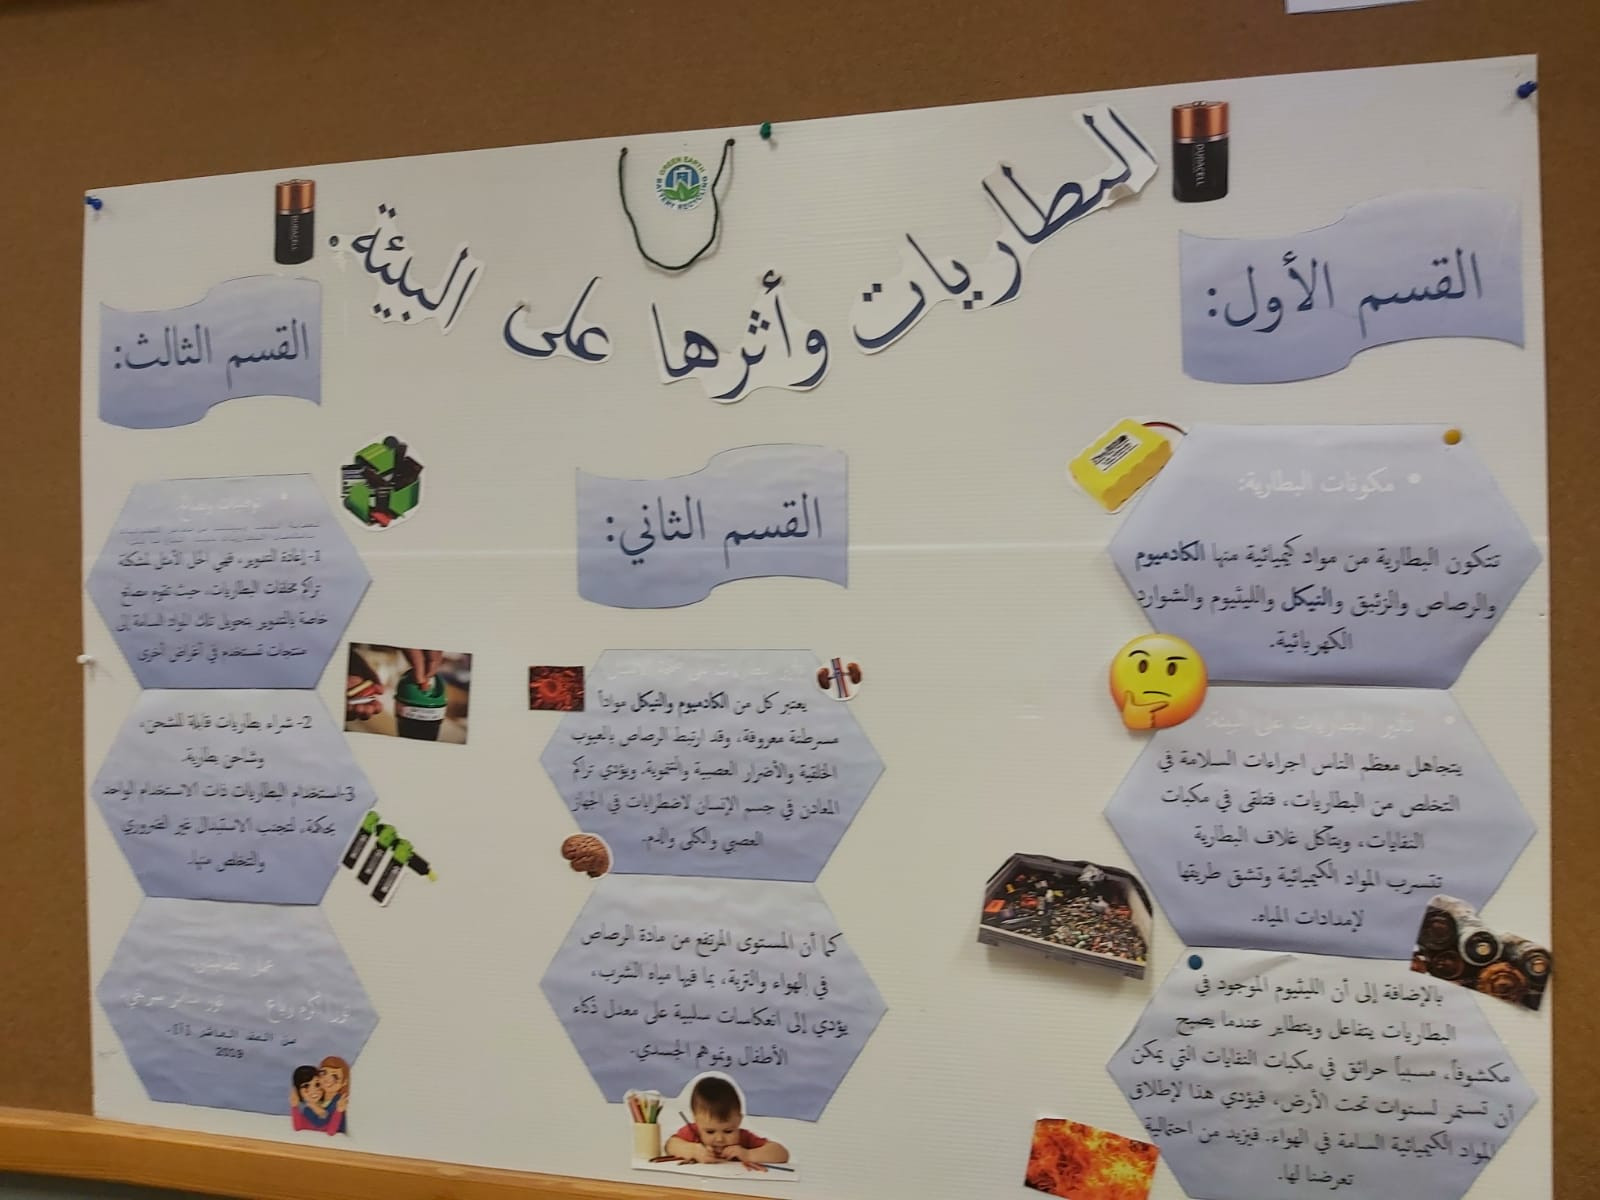 البطاريات وأثرها على البيئة:
GREEN EARTH BATTERY RECYCLING
DURACELL
DURACELL
القسم الأول:
• مكونات البطارية:
تتكون البطارية من مواد كيميائية منها الكادميوم
والرصاص والزئبق والنيكل والليثيوم والشوارد
الكهربائية.
• تأثير البطاريات على البيئة:
يتجاهل معظم الناس اجراءات السلامة في
التخلص من البطاريات، فتلقى في مكبات
النفايات، ويتآكل غلاف البطارية
تتسرب المواد الكيميائية وتشق طريقها
لإمدادات المياه.
بالإضافة إلى أن الليثيوم الموجود في
البطاريات يتفاعل ويتطاير عندما يصبح
مكشوفاً، مسبباً حرائق في مكبات النفايات التي يمكن
أن تستمر لسنوات تحت الأرض، فيؤدي هذا لإطلاق
المواد الكيميائية السامة في الهواء. فيزيد من احتمالية
تعرضنا لها.
القسم الثاني:
يعتبر كل من الكادميوم والنيكل مواداً
مسرطنة معروفة، وقد ارتبط الرصاص بالعيوب
الخلقية والأضرار العصبية والتنموية. ويؤدي تراكم
المعادن في جسم الإنسان لاضطرابات في الجهاز
العصبي والكلى والدم.
كما أن المستوى المرتفع من مادة الرصاص
في الهواء والتربة، بما فيها مياه الشرب،
يؤدي إلى انعكاسات سلبية على معدل ذكاء
الأطفال ونموهم الجسدي.
القسم الثالث:
• توصيات ونصائح
1- إعادة التدوير، فهي الحل الأمثل لمشكلة
تراكم مخلفات البطاريات، حيث تقوم مصانع
خاصة بالتدوير بتحويل تلك المواد السامة إلى
منتجات تستخدم في أغراض أخرى
2- شراء بطاريات قابلة للشحن،
وشاحن بطارية.
3-استخدام البطاريات ذات الاستخدام الواحد
بحكمة، لتجنب الاستبدال غير الضروري
والتخلص منها.
من الصف العاشر
2019